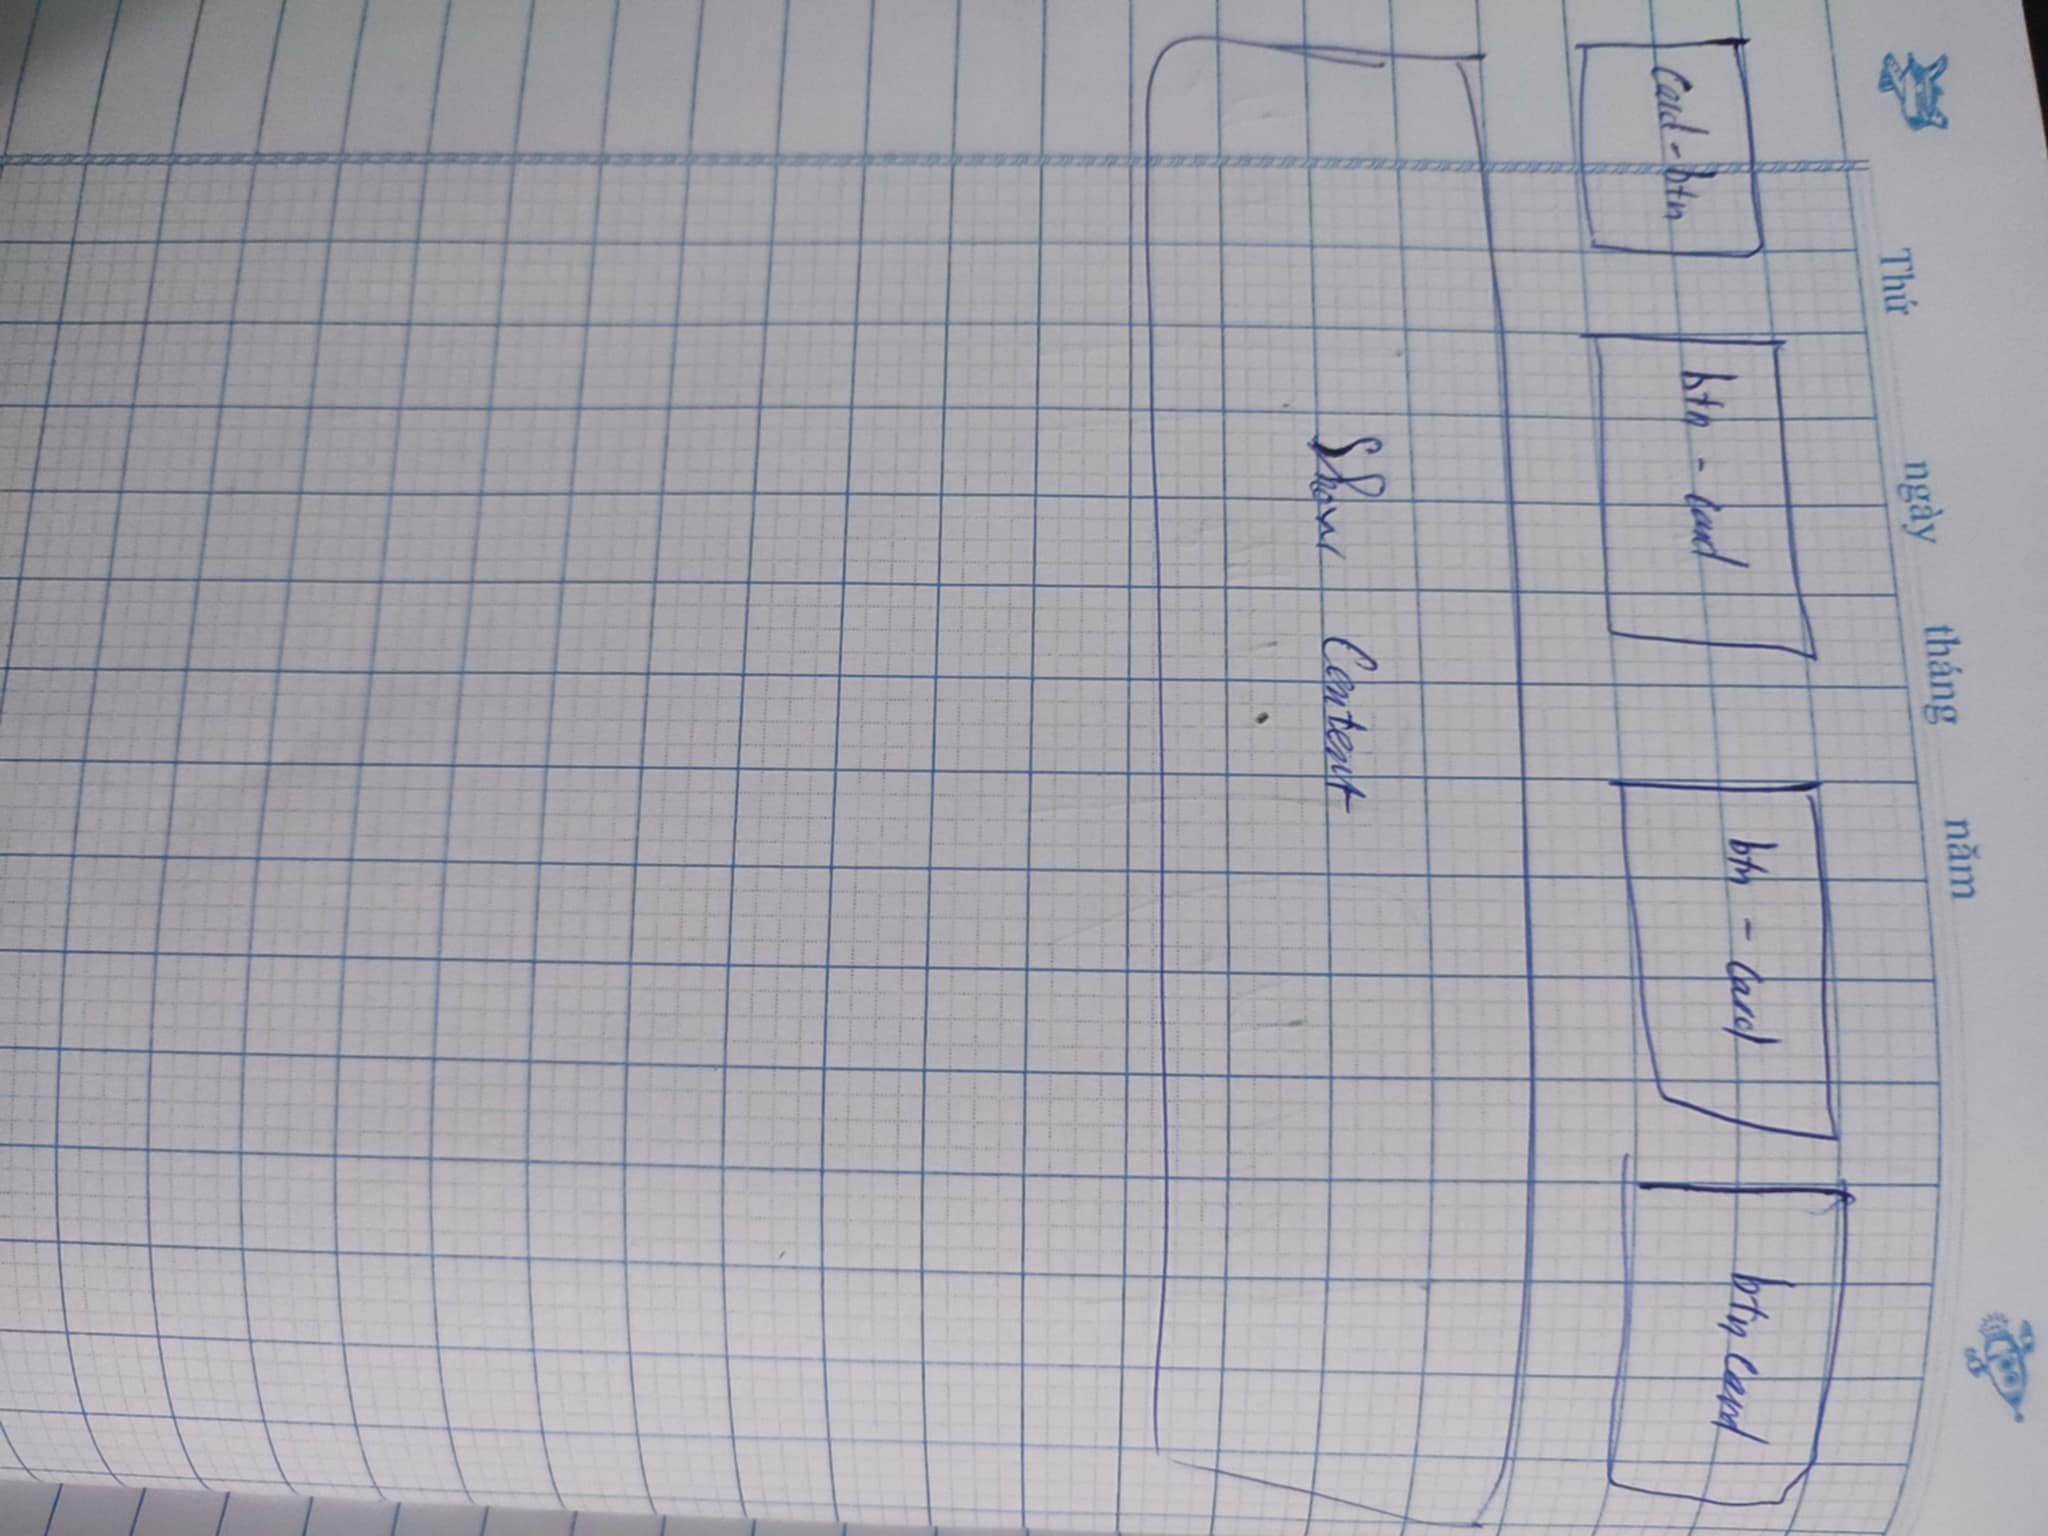 Thứ ngày tháng năm
card-btn btn - card btn - card btn card
Show Content